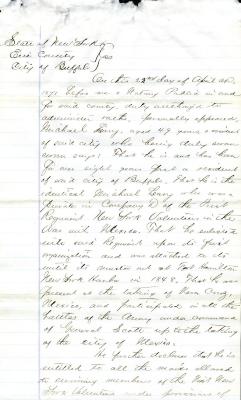 State of New York
Erie County } ss
City of Buffalo
On the 22nd day of April AD
1871 before me a Notary Public in and
for said County duly authorized to
administer oaths, personally appeared
Michael aged 49 years a resident
of said city who having duly sworn
says: That he is and has been
for over eight years past a resident
of said city of Buffalo. That he is the
identical Michael who was a
private in Company D of the First
Regiment New York Volunteers in the
War with Mexico. That he
with said Regiment upon its first
organization and was attached to it
until its muster out at Fort Hamilton
New York Harbor in 1848. That he was
present at the taking of Vera Cruz,
Mexico, and participated in all the
battles of the Army under command
of General Scott up to the taking
of the city of Mexico.
He further declares that he is
entitled to all the moneys allowed
to surviving members of the First New
York Volunteers under provisions of